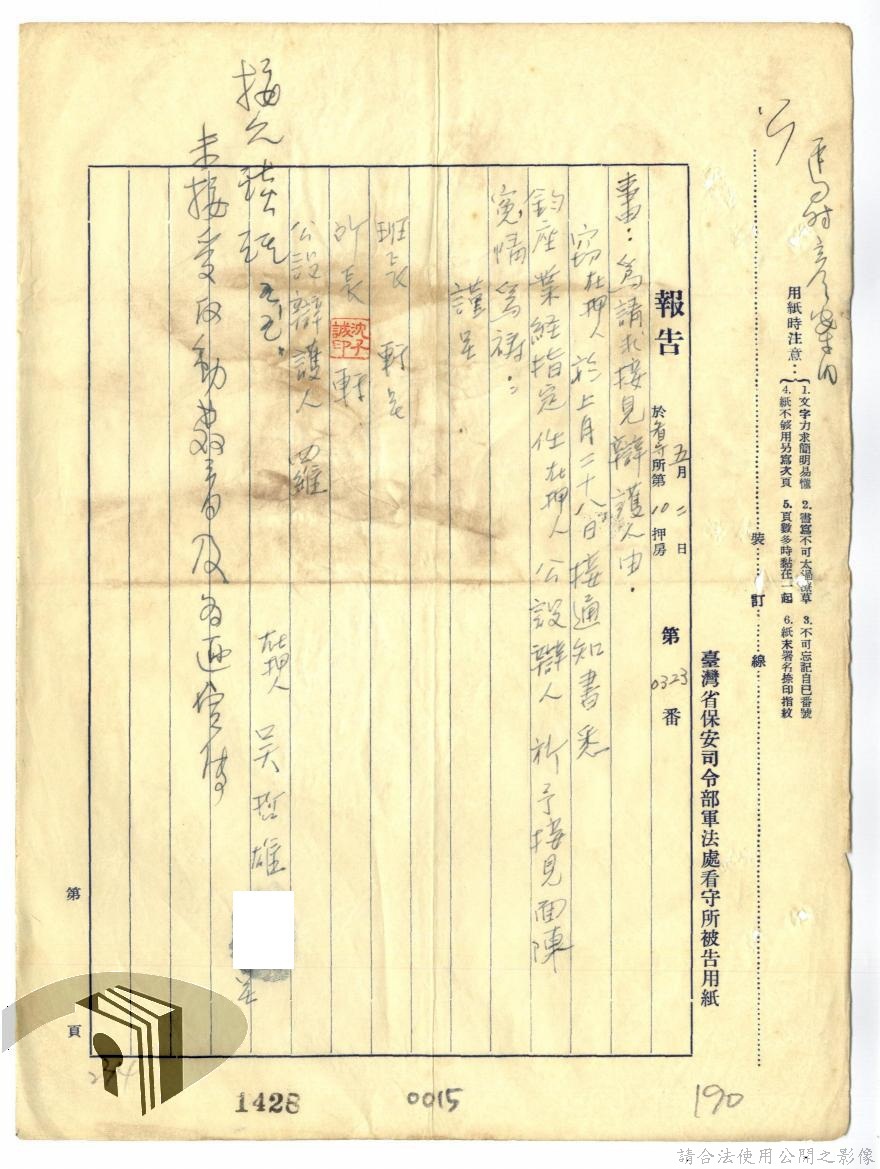 用紙時注意：
1. 文字力求簡明易懂 2. 書寫不可太過潦草 3. 不可忘記自己番號
4. 紙不够用另寫次頁 5. 頁數多時黏在一起 6. 紙末署名捺印指紋
裝訂線
臺灣省保安司令部軍法處看守所被告用紙
報告 五月二日 於看守所第10押房 第0323番
事由：為請求接見辯護人由．
竊在押人於上月二十八日接通知書悉
鈞座業經指定任在押人公設辯人 祈予接見面陳
冤情為禱．：
謹呈．
班長 轉呈
所長 轉
沈子誠印
公設辯護人 羅
在押人 吳哲雄
呈
第 頁
1428
0015
190
請合法使用公開之影像